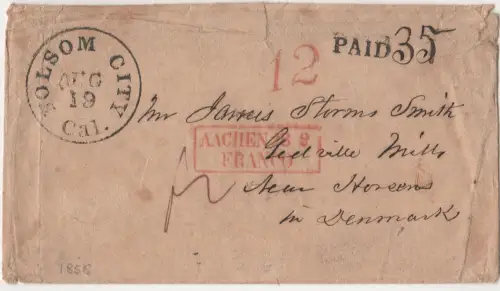 FOLSOM CITY
AUG
19
Cal.
12
PAID 35
Mr James Storms Smith
AACHEN 8 9
FRANCO
Mills
Near Horsens
in Denmark